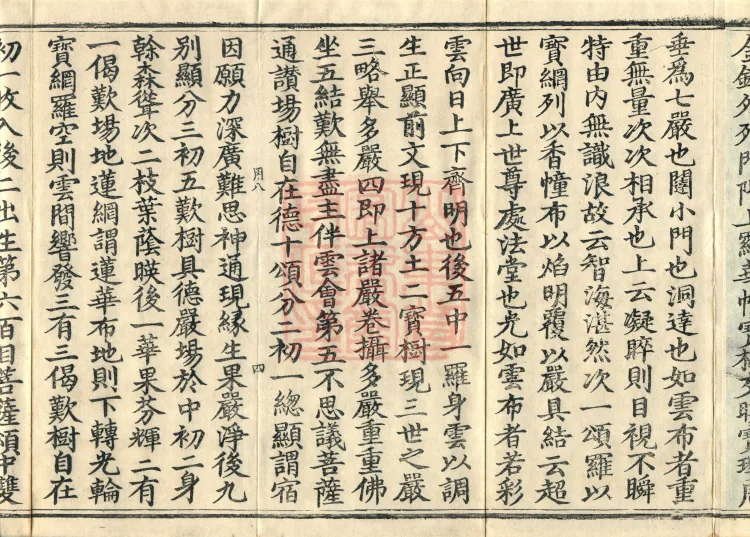 垂爲七嚴也闥小門也洞達也如雲布者重
重無量次次相承也上云凝睟則目視不瞬
特由内無識浪故云智海湛然次一頌羅以
寶網列以香幢布以焰明覆以嚴具結云超
世即廣上世尊處法堂也光如雲布者若彩
雲向日上下齊明也後五中一羅身雲以調
生正顯前文現十方土二寶樹現三世之嚴
三略舉多嚴四即上諸嚴卷攝多嚴重重佛
坐五結歎無盡主伴雲會第五不思議菩薩
通讚場樹自在德十頌分二初一總顯謂宿
因願力深廣難思神通現緣生果嚴淨後九
別顯分三初五歎樹具德嚴場於中初二身
榦森聳次二枝葉蔭暎後一華果芬輝二有
一偈歎場地蓮網謂蓮華布地則下轉光輪
寶網羅空則雲間響發三有三偈歎樹自在
初一攷入後二出生第六百目菩薩頌中雙